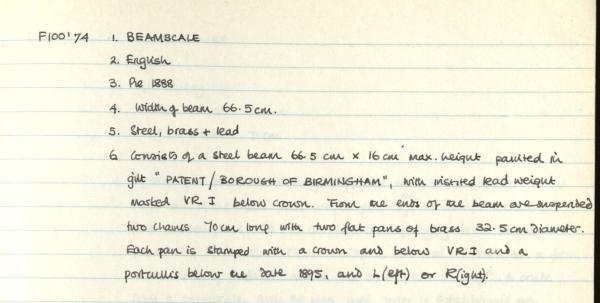 F100'74 1. BEAMSCALE
2. English
3. Pre 1888
4. Width of beam 66.5cm.
5. Steel, brass + lead
6 Consists of a steel beam 66.5 cm x 16cm max. height painted in
gilt "PATENT/BOROUGH OF BIRMINGHAM", with inserted lead weight
marked VR I below crown. From the ends of the beam are suspended
two chains 70cm long with two flat pans of brass 32.5cm diameter.
Each pan is stamped with a crown and below VR I and a
portcullis below the date 1895, and L(eft) or R(ight).